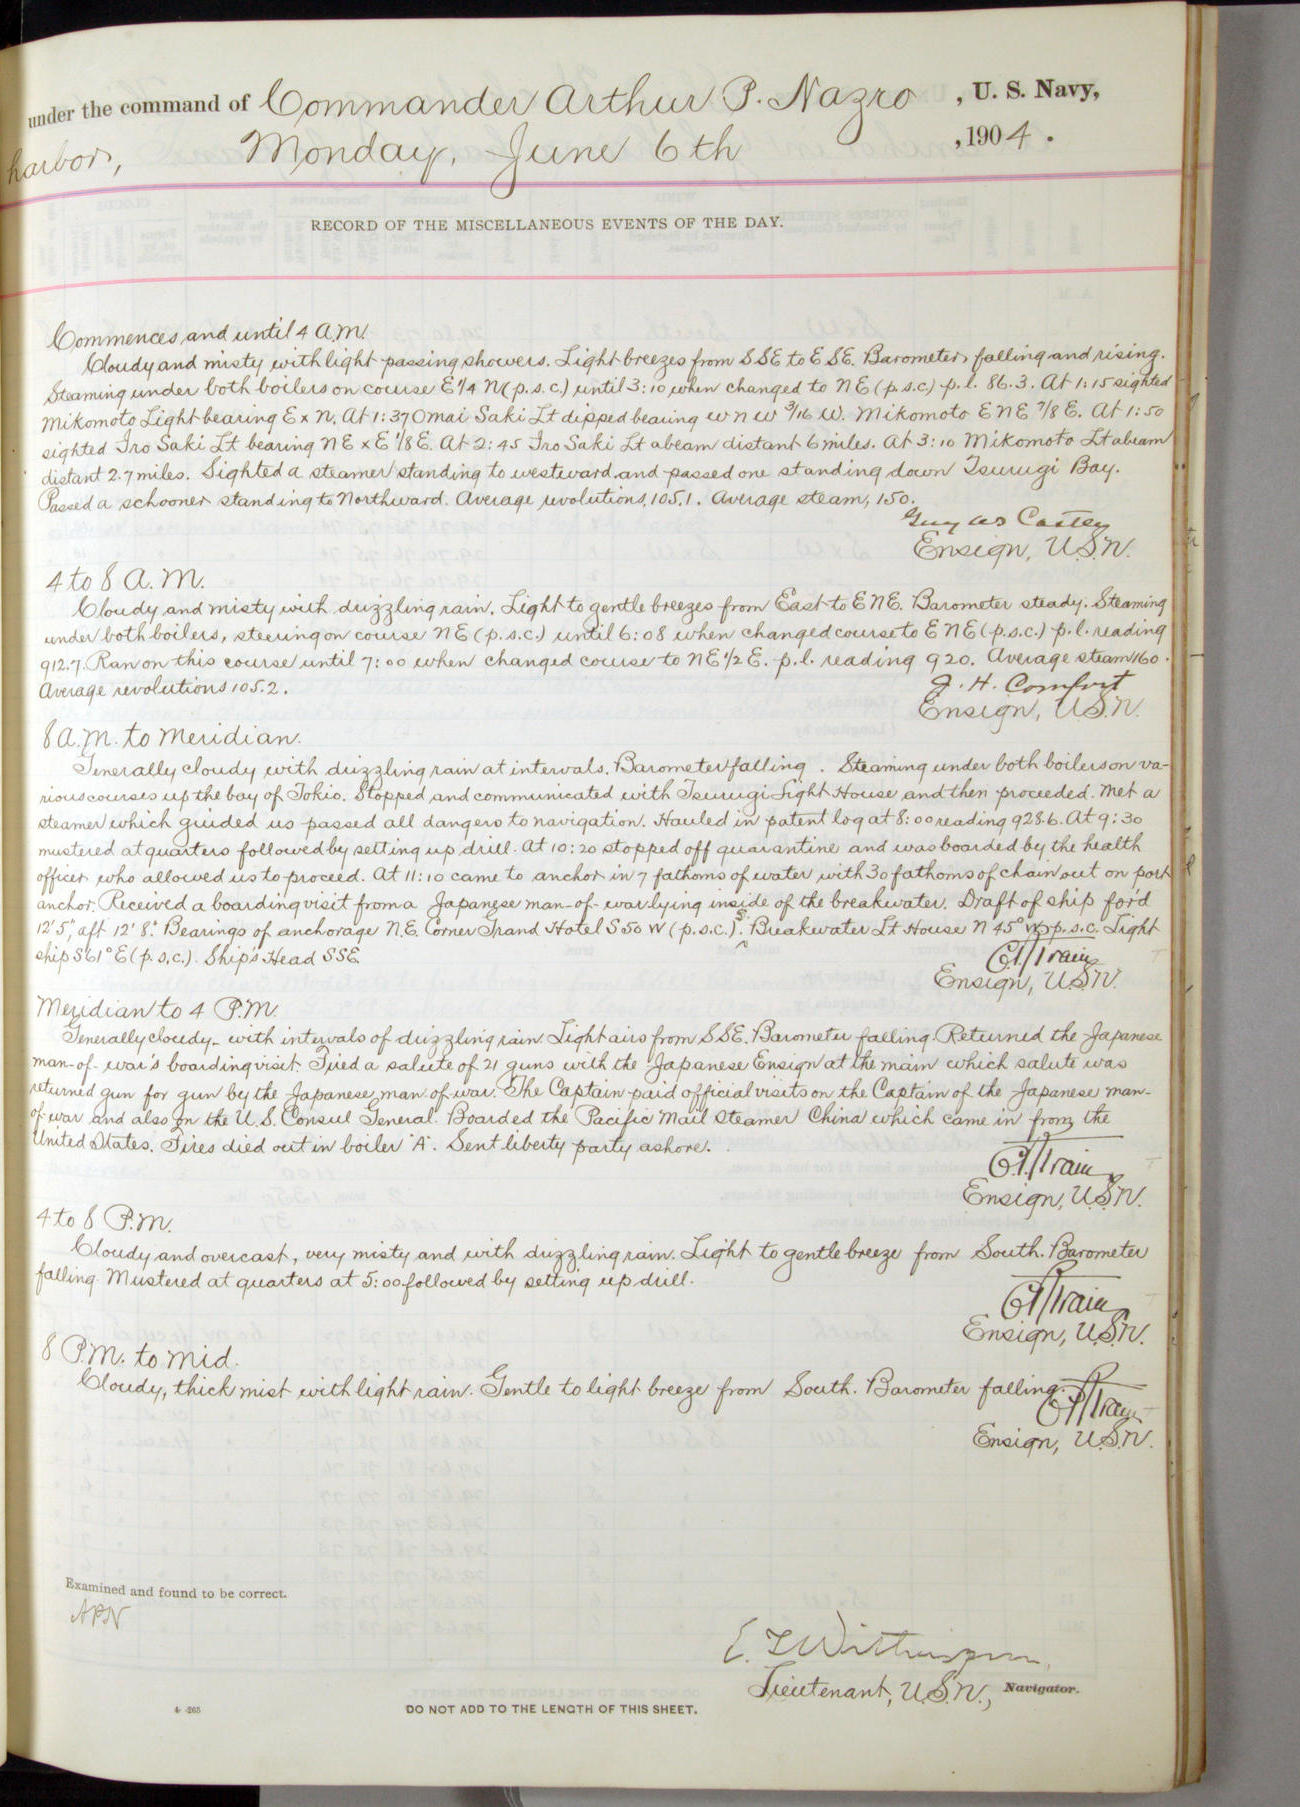 under the command of Commander Arthur P. Nazro, U. S. Navy,
harbor, Monday, June 6th, 1904.
RECORD OF THE MISCELLANEOUS EVENTS OF THE DAY.
Commences and until 4 A.M.
Cloudy and misty with light passing showers. Light breezes from SSE to ESE. Barometer falling and rising.
Steaming under both boilers on course E 1/4 N (p.s.c.) until 3:10 when changed to NE (p.s.c.) p.l. 86.3. At 1:15 sighted
Mikomoto Light bearing E x N. At 1:37 Omai Saki Lt dipped bearing WNW 3/16 W. Mikomoto ENE 7/8 E. At 1:50
sighted Iro Saki Lt bearing NE x E 1/8 E. At 2:45 Iro Saki Lt abeam distant 6 miles. At 3:10 Mikomoto Lt abeam
distant 2.7 miles. Sighted a steamer standing to westward and passed one standing down Tsurugi Bay.
Passed a schooner standing to Northward. Average revolutions, 105.1. Average steam, 150.
Guy W S Castle
Ensign, U.S.N.
4 to 8 A.M.
Cloudy and misty with drizzling rain. Light to gentle breezes from East to ENE. Barometer steady. Steaming
under both boilers, steering on course NE (p.s.c.) until 6:08 when changed course to ENE (p.s.c.) p.l. reading
912.7. Ran on this course until 7:00 when changed course to NE 1/2 E. p.l. reading 920. Average steam 160.
Average revolutions 105.2.
J. H. Comfort
Ensign, U.S.N.
8 A.M. to Meridian.
Generally cloudy with drizzling rain at intervals. Barometer falling. Steaming under both boilers on va-
rious courses up the bay of Tokio. Stopped and communicated with Tsurugi Light House and then proceeded. Met a
steamer which guided us passed all dangers to navigation. Hauled in patent log at 8:00 reading 928.6. At 9:30
mustered at quarters followed by setting up drill. At 10:20 stopped off quarantine and was boarded by the health
officer who allowed us to proceed. At 11:10 came to anchor in 7 fathoms of water with 30 fathoms of chain out on port
anchor. Received a boarding visit from a Japanese man-of-war lying inside of the breakwater. Draft of ship for'd
12' 5", aft 12' 8". Bearings of anchorage N.E. Corner Grand Hotel S 50 W (p.s.c.). Breakwater Lt House N 45° W p.s.c. Light
ship S 61° E (p.s.c.). Ship's Head SSE.
C R Train
Ensign, U.S.N.
Meridian to 4 P.M.
Generally cloudy with intervals of drizzling rain. Light airs from SSE. Barometer falling. Returned the Japanese
man-of-war's boarding visit. Fired a salute of 21 guns with the Japanese Ensign at the main which salute was
returned gun for gun by the Japanese man-of-war. The Captain paid official visits on the Captain of the Japanese man-
of-war and also on the U.S. Consul General. Boarded the Pacific Mail Steamer China which came in from the
United States. Fires died out in boiler "A". Sent liberty party ashore.
C R Train
Ensign, U.S.N.
4 to 8 P.M.
Cloudy and overcast, very misty and with drizzling rain. Light to gentle breeze from South. Barometer
falling. Mustered at quarters at 5:00 followed by setting up drill.
C R Train
Ensign, U.S.N.
8 P.M. to Mid.
Cloudy, thick mist with light rain. Gentle to light breeze from South. Barometer falling.
C R Train
Ensign, U.S.N.
Examined and found to be correct.
APN
E. T. Witherspoon
Lieutenant, U.S.N., Navigator.
DO NOT ADD TO THE LENGTH OF THIS SHEET.